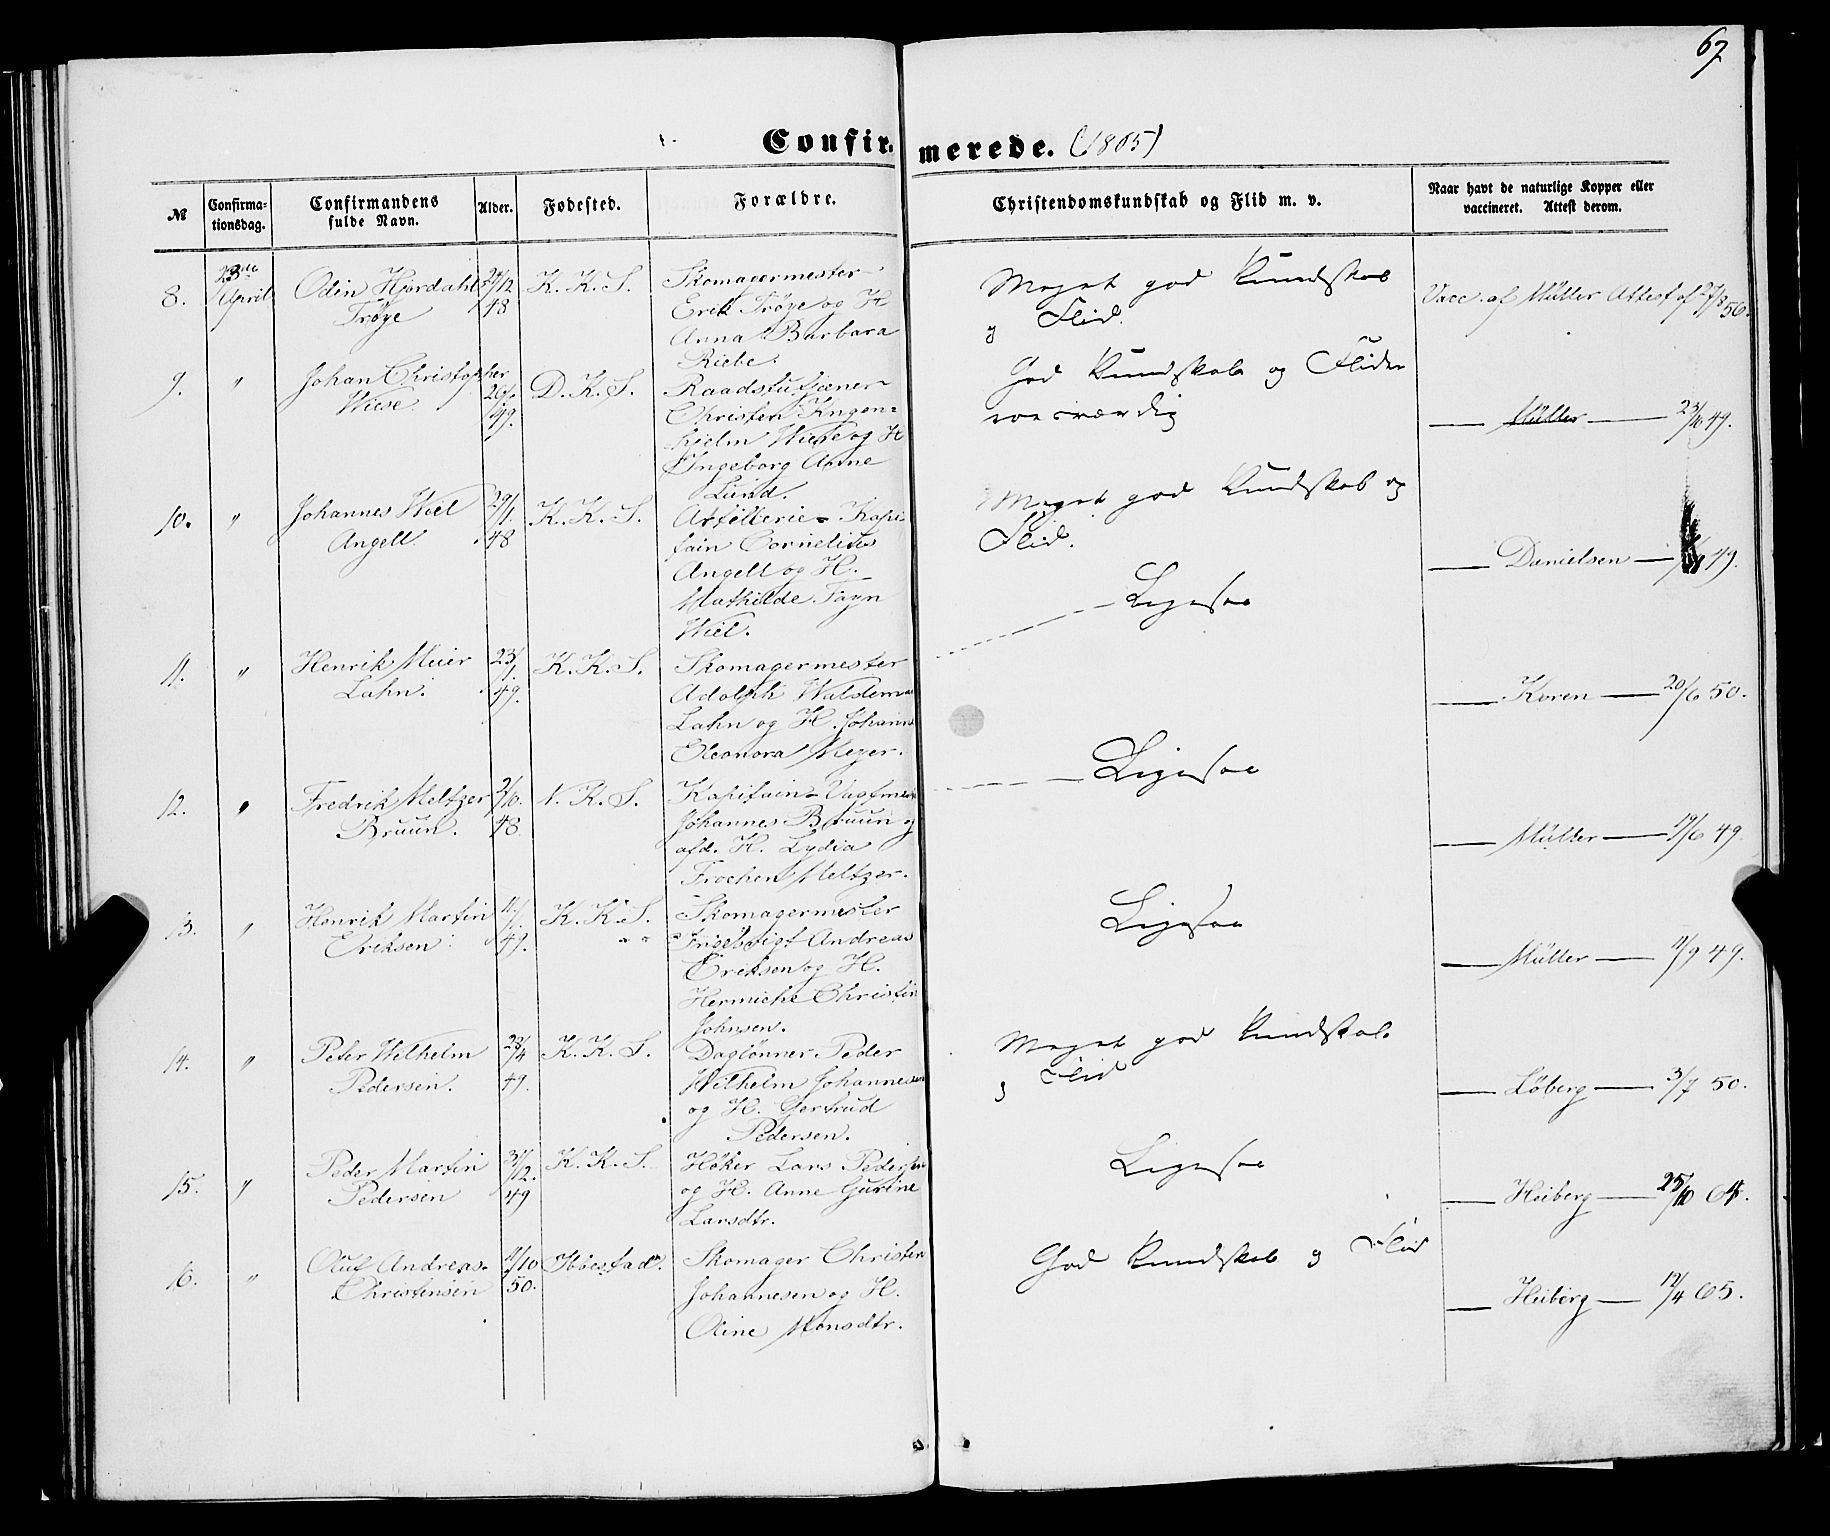 67
Confirmerede. (1865)
№
Confirma-
tionsdag.
Confirmandens
fulde Navn.
Alder.
Fødested.
Forældre.
Christendomskundskab og Flid m. v.
Naar havt de naturlige Kopper eller
vaccineret. Attest derom.
8.
23de
April
Odin Hjordahl
Trøye
27/12
48
K. K. S.
Skomagermester
Erik Trøye og H
Anna Barbara
Riebe.
Meget god Kundskab
og Flid.
Vacc. af Müller Attest af 27/8 56.
9.
"
Johan Christopher
Wiese
49.
D. K. S.
Raadstutjener
Christen Kngen=
hjelm Wiese og H
Ingeborg Anne
Lund.
God Kundskab og Fliden
roesværdig
Müller 23/10 49.
10.
"
Johannes Wiel
Angell.
29/1
48
K. K. S.
Artillerie= Kapi
tain Cornelius
Angell og H.
Mathilde Fayn
Wiel.
Meget god Kundskab og
Flid.
Danielsen 49.
11.
"
Henrik Meier
Lahn.
23/1
49.
K. K. S.
Skomagermester
Adolph Waldemar
Lahn og H. Johanne
Eleonora Meyer.
Ligesaa
Koren 20/6 50.
12.
"
Fredrik Meltzer
Bruun.
2/10
48
N. K. S.
Kapitain= Vagtmes
Johannes Bruun og
afd. H. Lydia
Frochen Meltzer.
Ligesaa
Müller 19/6 49.
13.
"
Henrik Martin
Eriksen
11/1
49.
K. K. S.
Skomagermester
Ingebrigt Andreas
Eriksen og H.
Hermiche Christin
Johnsen.
Ligesaa
Müller 11/9 49.
14.
"
Peter Wilhelm
Pedersen.
23/4
49.
K. K. S.
Daglønner Peder
Wilhelm Johannesen
og H. Gertrud
Pedersen.
Meget god Kundskab
og Flid
Løberg 3/7 50.
15.
"
Peder Martin
Pedersen
31/12.
49
K. K. S.
Høker Lars Pedersen
og H. Anne Gurine
Larsdtr.
Ligesaa
Heiberg 25/10 64.
16.
"
Oluf Andreas
Christensen
11/10
50.
Ibbestad.
Skomager Christen
Johannesen og H.
Oline Monsdtr.
God Kundskab og Flid
Heiberg 12/4 65.